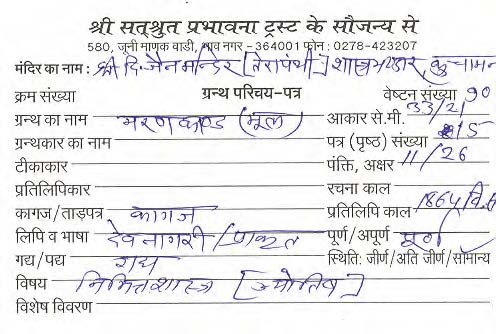 श्री सत्श्रुत प्रभावना ट्रस्ट के सौजन्य से
580, जूनी माणक वाडी, भाव नगर - 364001 फोन : 0278-423207
मंदिर का नाम : श्री दि. जैन मन्दिर [तेरापंथी] शास्त्र भण्डार, कुचामन
क्रम संख्या ग्रन्थ परिचय-पत्र वेष्टन संख्या 90
ग्रन्थ का नाम मरणकाण्ड (मूल) आकार से.मी. 33/21
ग्रन्थकार का नाम पत्र (पृष्ठ) संख्या 15
टीकाकार पंक्ति, अक्षर 11/26
प्रतिलिपिकार रचना काल
कागज/ताड़पत्र कागज प्रतिलिपि काल 1864 वि.
लिपि व भाषा देवनागरी/प्राकृत पूर्ण/अपूर्ण पूर्ण
गद्य/पद्य गद्य स्थिति: जीर्ण/अति जीर्ण/सामान्य
विषय निमित्तशास्त्र [ज्योतिष]
विशेष विवरण